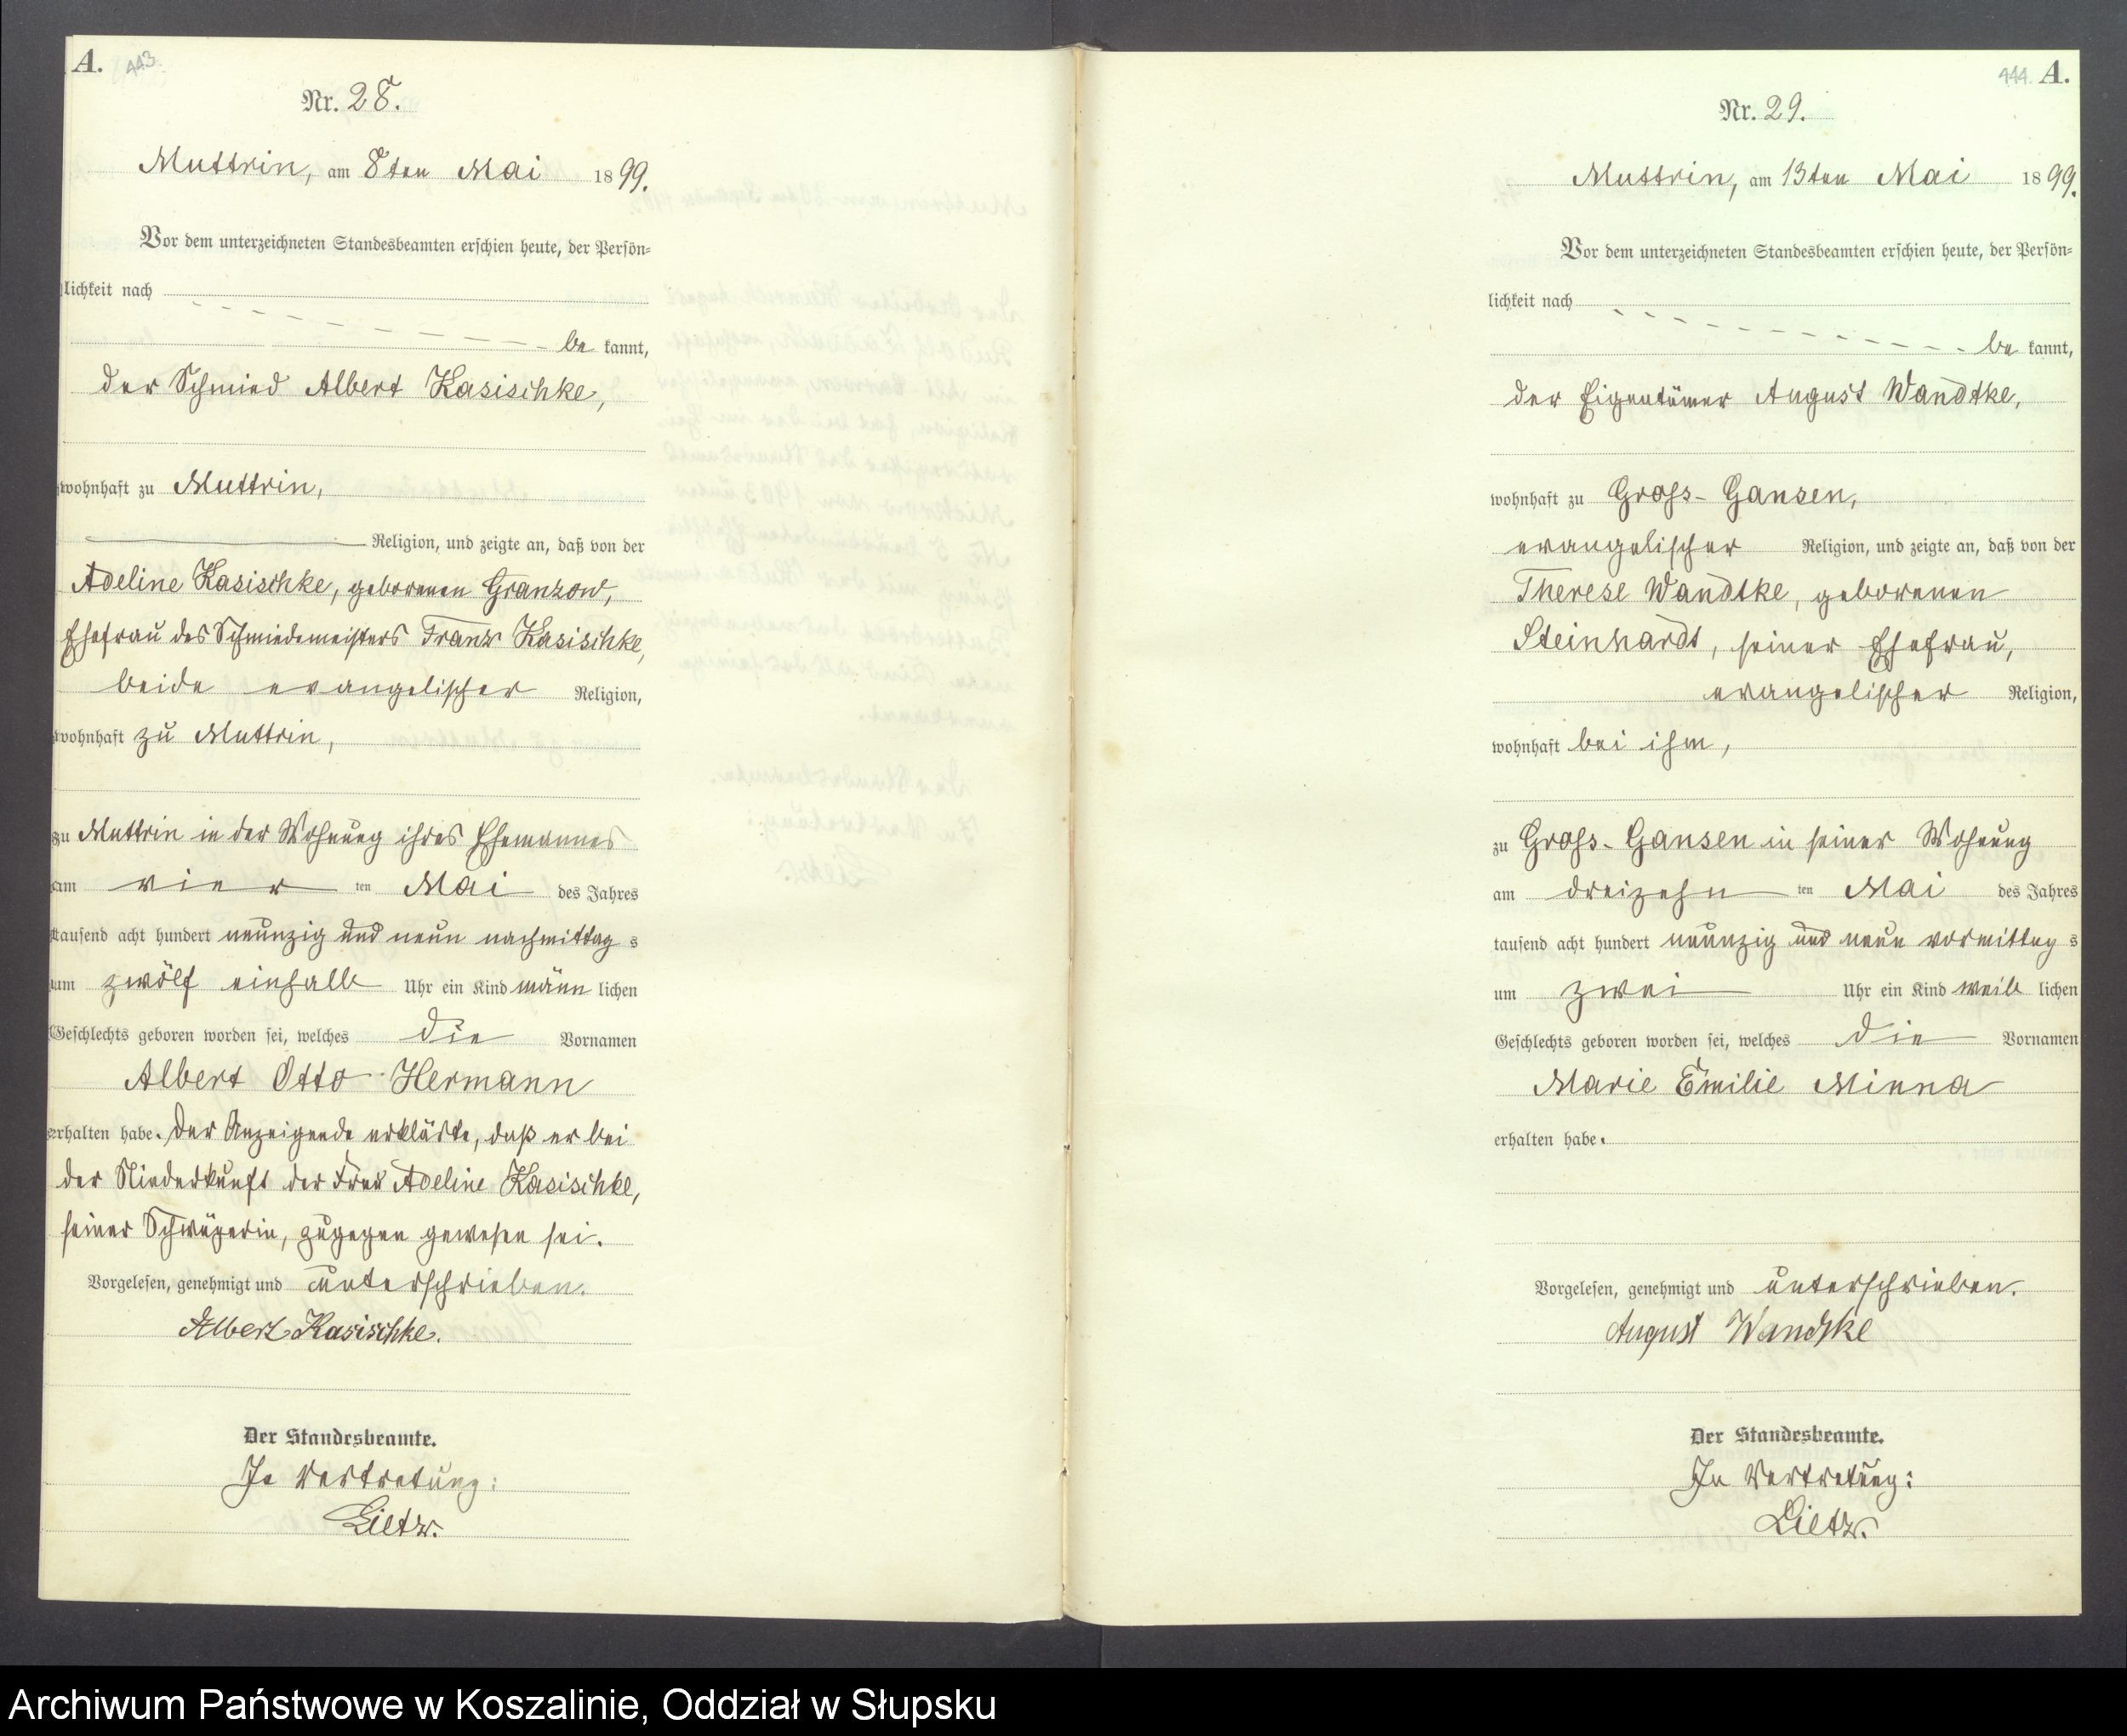 A. 443.
Nr. 28.
Muttrin, am 8ten Mai 1899.
Vor dem unterzeichneten Standesbeamten erschien heute, der Persön-
lichkeit nach
be kannt,
der Schmied Albert Kasischke,
wohnhaft zu Muttrin,
Religion, und zeigte an, daß von der
Adeline Kasischke, geborenen Granzow,
Ehefrau des Schmiedemeisters Franz Kasischke,
beide evangelischer Religion,
wohnhaft zu Muttrin,
zu Muttrin in der Wohnung ihres Ehemannes
am vier ten Mai des Jahres
tausend acht hundert neunzig und neun nachmittag s
um zwölf einhalb Uhr ein Kind männ lichen
Geschlechts geboren worden sei, welches die Vornamen
Albert Otto Hermann
erhalten habe. Der Anzeigende erklärte, daß er bei
der Niederkunft der Frau Adeline Kasischke,
seiner Schwägerin, zugegen gewesen sei.
Vorgelesen, genehmigt und unterschrieben.
Albert Kasischke.
Der Standesbeamte.
In Vertretung:
Lietz.
444. A.
Nr. 29.
Muttrin, am 13ten Mai 1899.
Vor dem unterzeichneten Standesbeamten erschien heute, der Persön-
lichkeit nach
be kannt,
der Eigentümer August Wandtke,
wohnhaft zu Gross-Gansen,
evangelischer Religion, und zeigte an, daß von der
Therese Wandtke, geborenen
Steinhardt, seiner Ehefrau,
evangelischer Religion,
wohnhaft bei ihm,
zu Gross-Gansen in seiner Wohnung
am dreizehn ten Mai des Jahres
tausend acht hundert neunzig und neun vormittag s
um zwei Uhr ein Kind weib lichen
Geschlechts geboren worden sei, welches die Vornamen
Marie Emilie Minna
erhalten habe.
Vorgelesen, genehmigt und unterschrieben.
August Wandtke
Der Standesbeamte.
In Vertretung:
Lietz.
Archiwum Państwowe w Koszalinie, Oddział w Słupsku